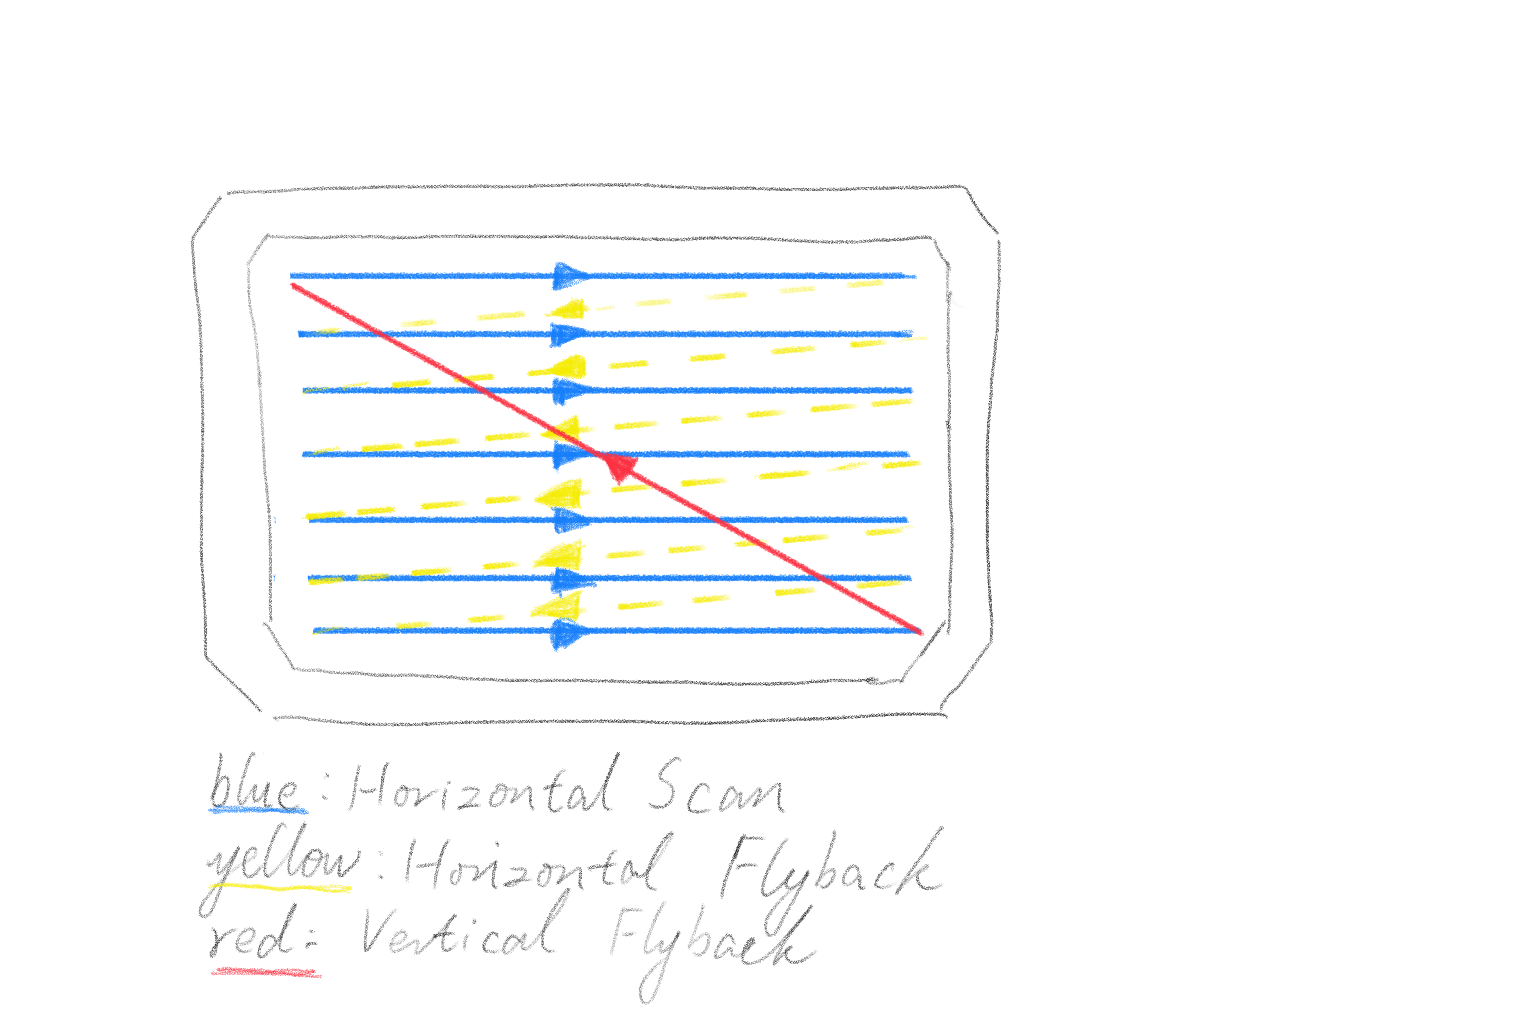 blue: Horizontal Scan
yellow: Horizontal Flyback
red: Vertical Flyback